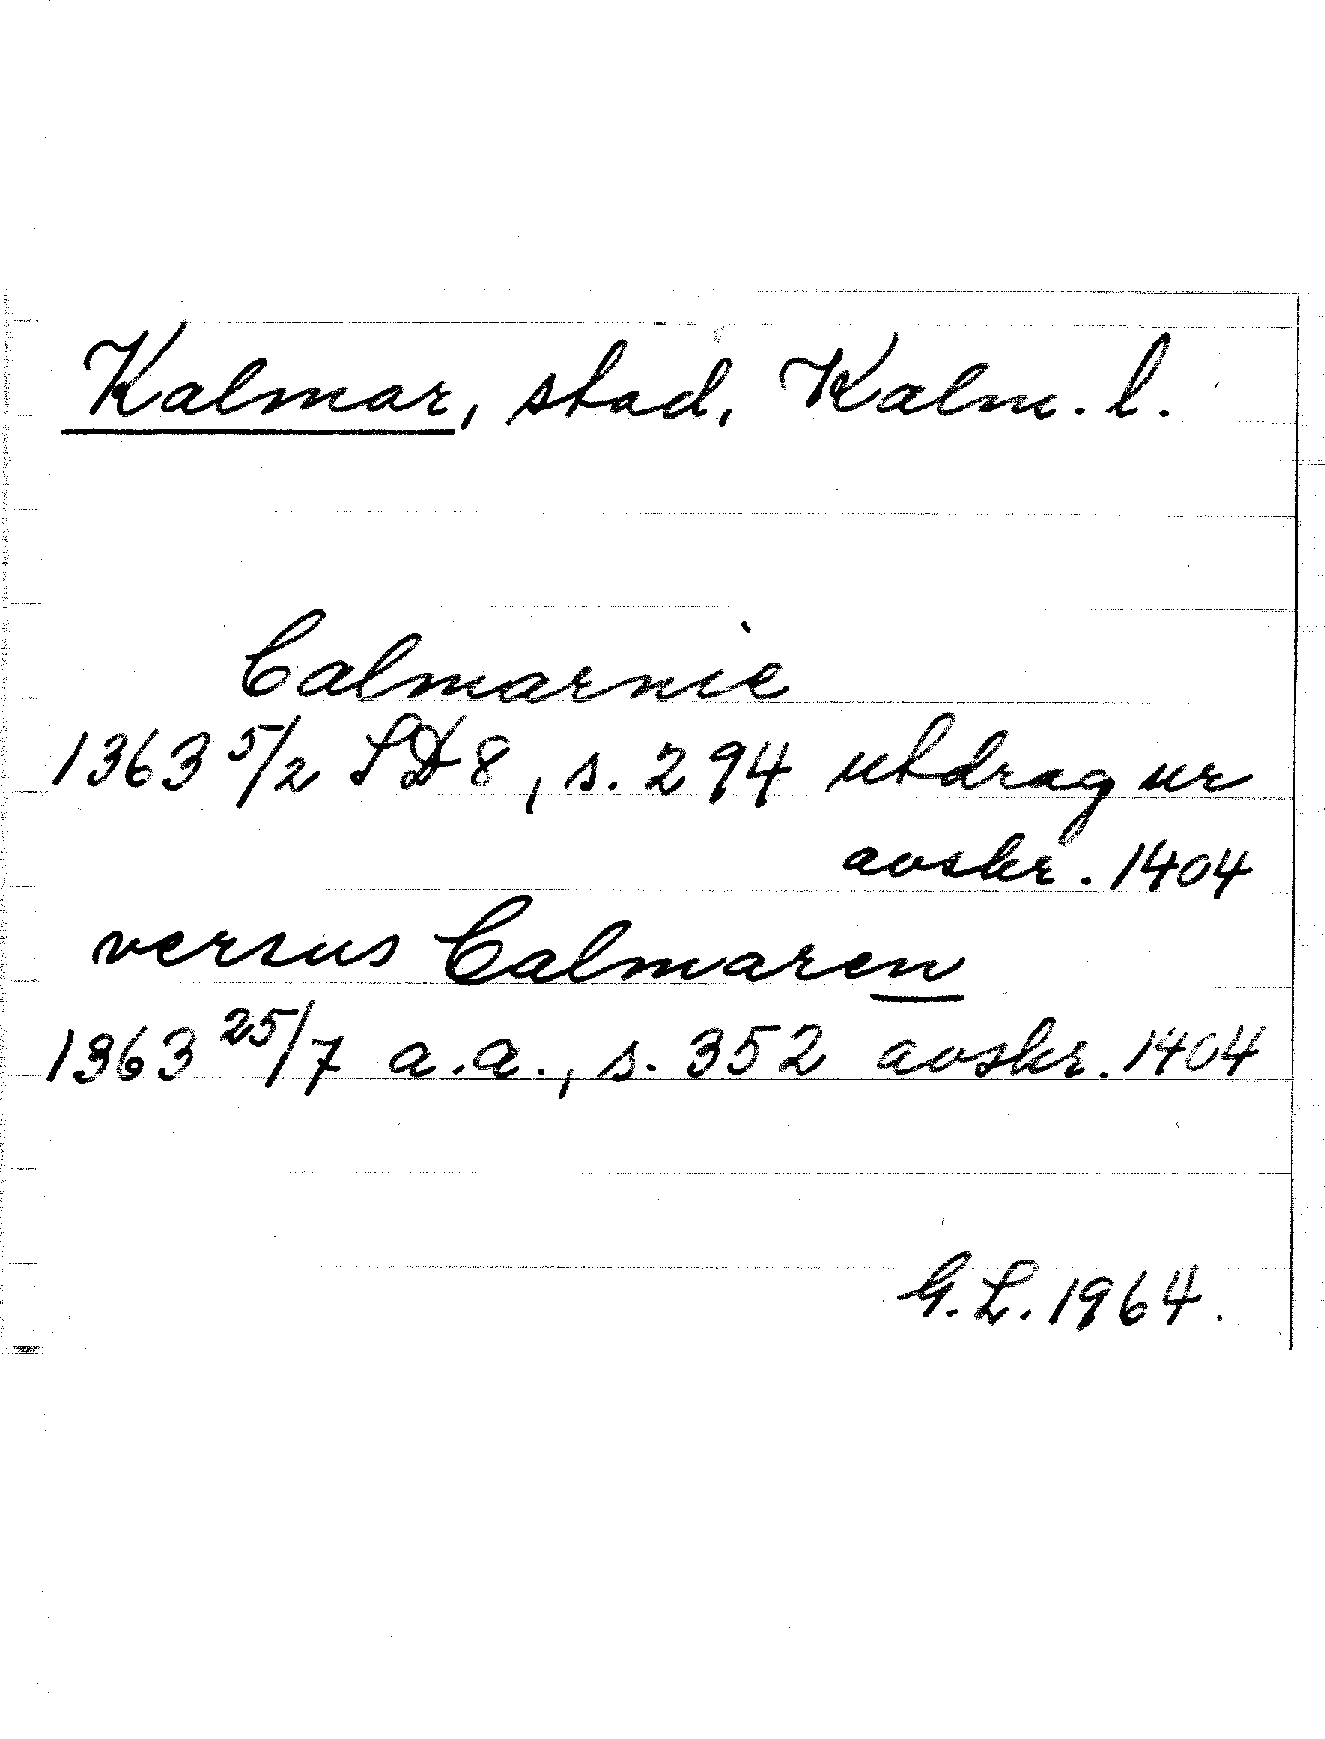 Kalmar, stad, Kalm. l.
Calmarnie
1363 5/2 SD 8, s. 294 utdrag ur
avskr. 1404
versus Calmaren
1363 25/7 a.a., s. 352 avskr. 1404
G.L. 1964.